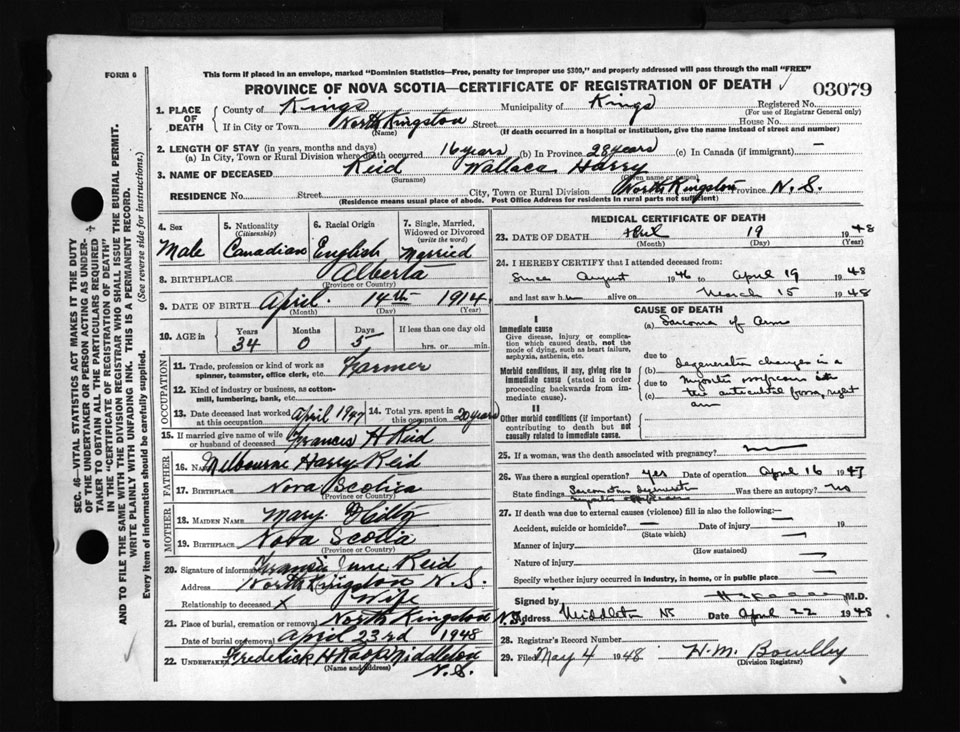 FORM 6
This form if placed in an envelope, marked "Dominion Statistics—Free, penalty for improper use $300," and properly addressed will pass through the mail "FREE"
PROVINCE OF NOVA SCOTIA—CERTIFICATE OF REGISTRATION OF DEATH
03079
1. PLACE OF DEATH County of Kings Municipality of Kings Registered No.
(For use of Registrar General only)
If in City or Town North Kingston Street House No.
(Name) (If death occurred in a hospital or institution, give the name instead of street and number)
2. LENGTH OF STAY (in years, months and days)
(a) In City, Town or Rural Division where death occurred 16 years (b) In Province 28 years (c) In Canada (if immigrant) —
3. NAME OF DECEASED Reid Wallace Harry
(Surname) (Given name or names)
RESIDENCE No. Street City, Town or Rural Division North Kingston Province N.S.
(Residence means usual place of abode. Post Office Address for residents in rural parts not sufficient)
4. Sex Male
5. Nationality (Citizenship) Canadian
6. Racial Origin English
7. Single, Married, Widowed or Divorced (write the word) Married
8. BIRTHPLACE Alberta
(Province or Country)
9. DATE OF BIRTH April 14th 1914
(Month) (Day) (Year)
10. AGE in Years Months Days If less than one day old
34 0 5 hrs. or min.
OCCUPATION
11. Trade, profession or kind of work as spinner, teamster, office clerk, etc. Farmer
12. Kind of industry or business, as cotton-mill, lumbering, bank, etc.
13. Date deceased last worked at this occupation April 1947
14. Total yrs. spent in this occupation 20 years
15. If married give name of wife or husband of deceased Frances H Reid
FATHER
16. Name Melbourne Harry Reid
17. BIRTHPLACE Nova Scotia
(Province or Country)
MOTHER
18. MAIDEN NAME Mary
19. BIRTHPLACE Nova Scotia
(Province or Country)
20. Signature of informant June Reid
Address North Kingston N.S.
Relationship to deceased X Wife
21. Place of burial, cremation or removal North Kingston N.S.
Date of burial or removal April 23rd 1948
22. Undertaker Frederick H Middleton N.S.
(Name and address)
MEDICAL CERTIFICATE OF DEATH
23. DATE OF DEATH April 19 1948
(Month) (Day) (Year)
24. I HEREBY CERTIFY that I attended deceased from:
Since August 1946 to April 19 1948
and last saw h alive on March 15 1948
CAUSE OF DEATH
I
Immediate cause
Give disease, injury or complication which caused death, not the mode of dying, such as heart failure, asphyxia, asthenia, etc.
(a) Sarcoma of Arm
due to
Morbid conditions, if any, giving rise to immediate cause (stated in order proceeding backwards from immediate cause).
(b) degenerative changes in a
due to
(c) the anticubital fossa, right arm
II
Other morbid conditions (if important) contributing to death but not causally related to immediate cause.
25. If a woman, was the death associated with pregnancy?
26. Was there a surgical operation? yes Date of operation April 16 1947
State findings Was there an autopsy? no
27. If death was due to external causes (violence) fill in also the following:
Accident, suicide or homicide? — Date of injury — 19
(State which)
Manner of injury
(How sustained)
Nature of injury
Specify whether injury occurred in industry, in home, or in public place —
Signed by M.D.
Address Middleton NS Date April 22 1948
28. Registrar's Record Number
29. Filed May 4 1948 H.M. Bowlby
(Division Registrar)
SEC. 46—VITAL STATISTICS ACT MAKES IT THE DUTY
OF THE UNDERTAKER OR PERSON ACTING AS UNDER-
TAKER TO OBTAIN ALL THE PARTICULARS REQUIRED
IN THE "CERTIFICATE OF REGISTRATION OF DEATH"
AND TO FILE THE SAME WITH THE DIVISION REGISTRAR WHO SHALL ISSUE THE BURIAL PERMIT.
WRITE PLAINLY WITH UNFADING INK. THIS IS A PERMANENT RECORD.
Every item of information should be carefully supplied. (See reverse side for instructions.)